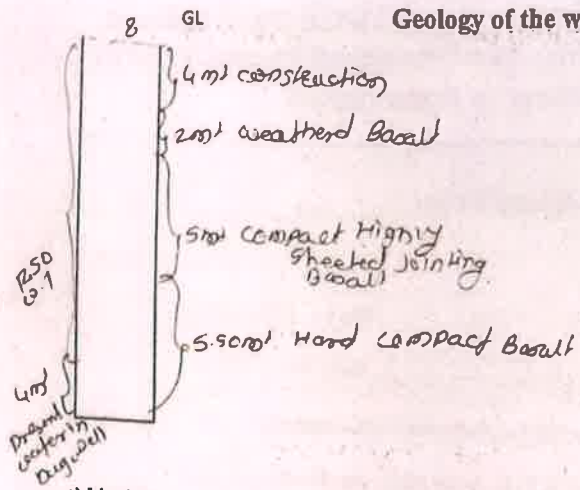 8 GL Geology of the w
4 mt construction
2mt weatherd Basalt
5mt Compact Highly
Sheeted Jointing
Basalt
5.50mt Hard compact Basalt
4mt
Present
water in
Dugwell